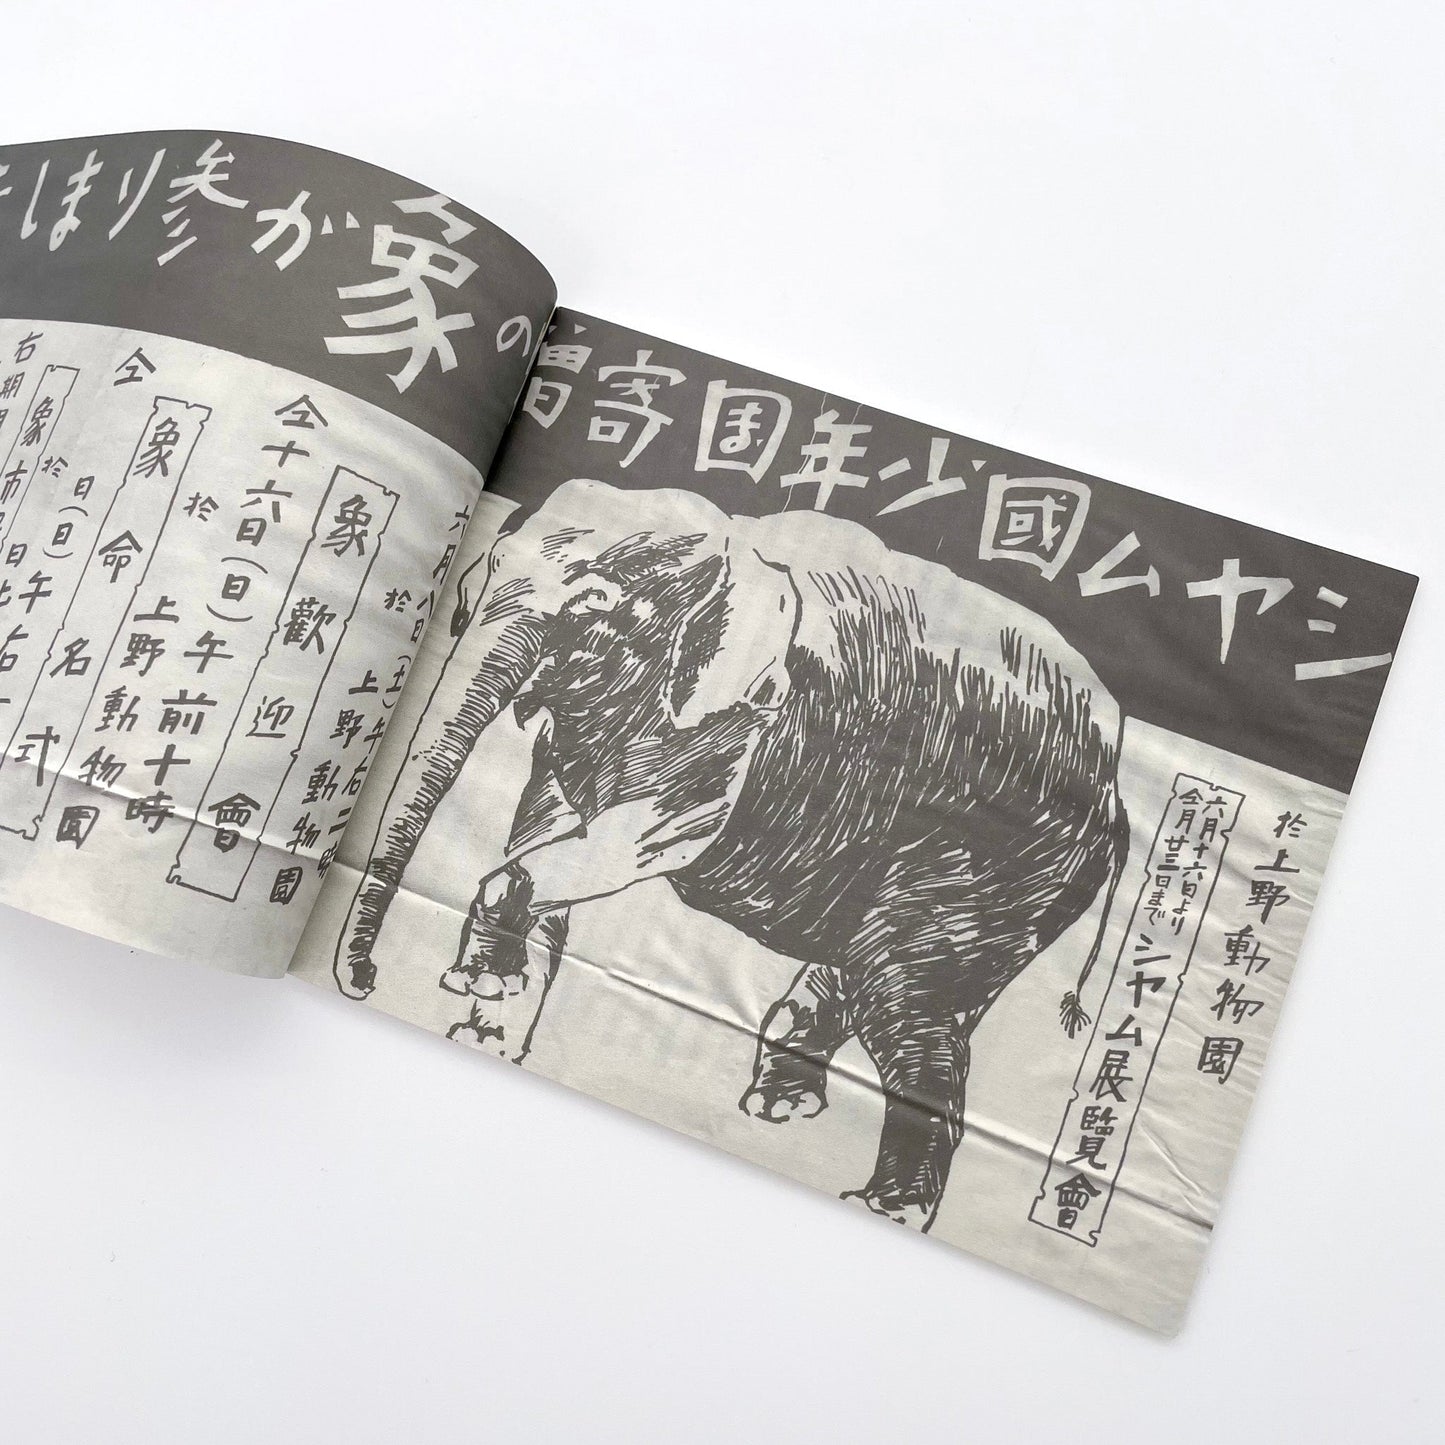 シヤム國少年団寄贈の象が参りまし
於上野動物園
六月十六日より
仝月廿三日まで
シヤム展覽會
六月八日(土)午后二時
於上野動物園
象歡迎會
仝十六日(日)午前十時
於上野動物園
象命名式
仝 日(日)午
於
象
右期間